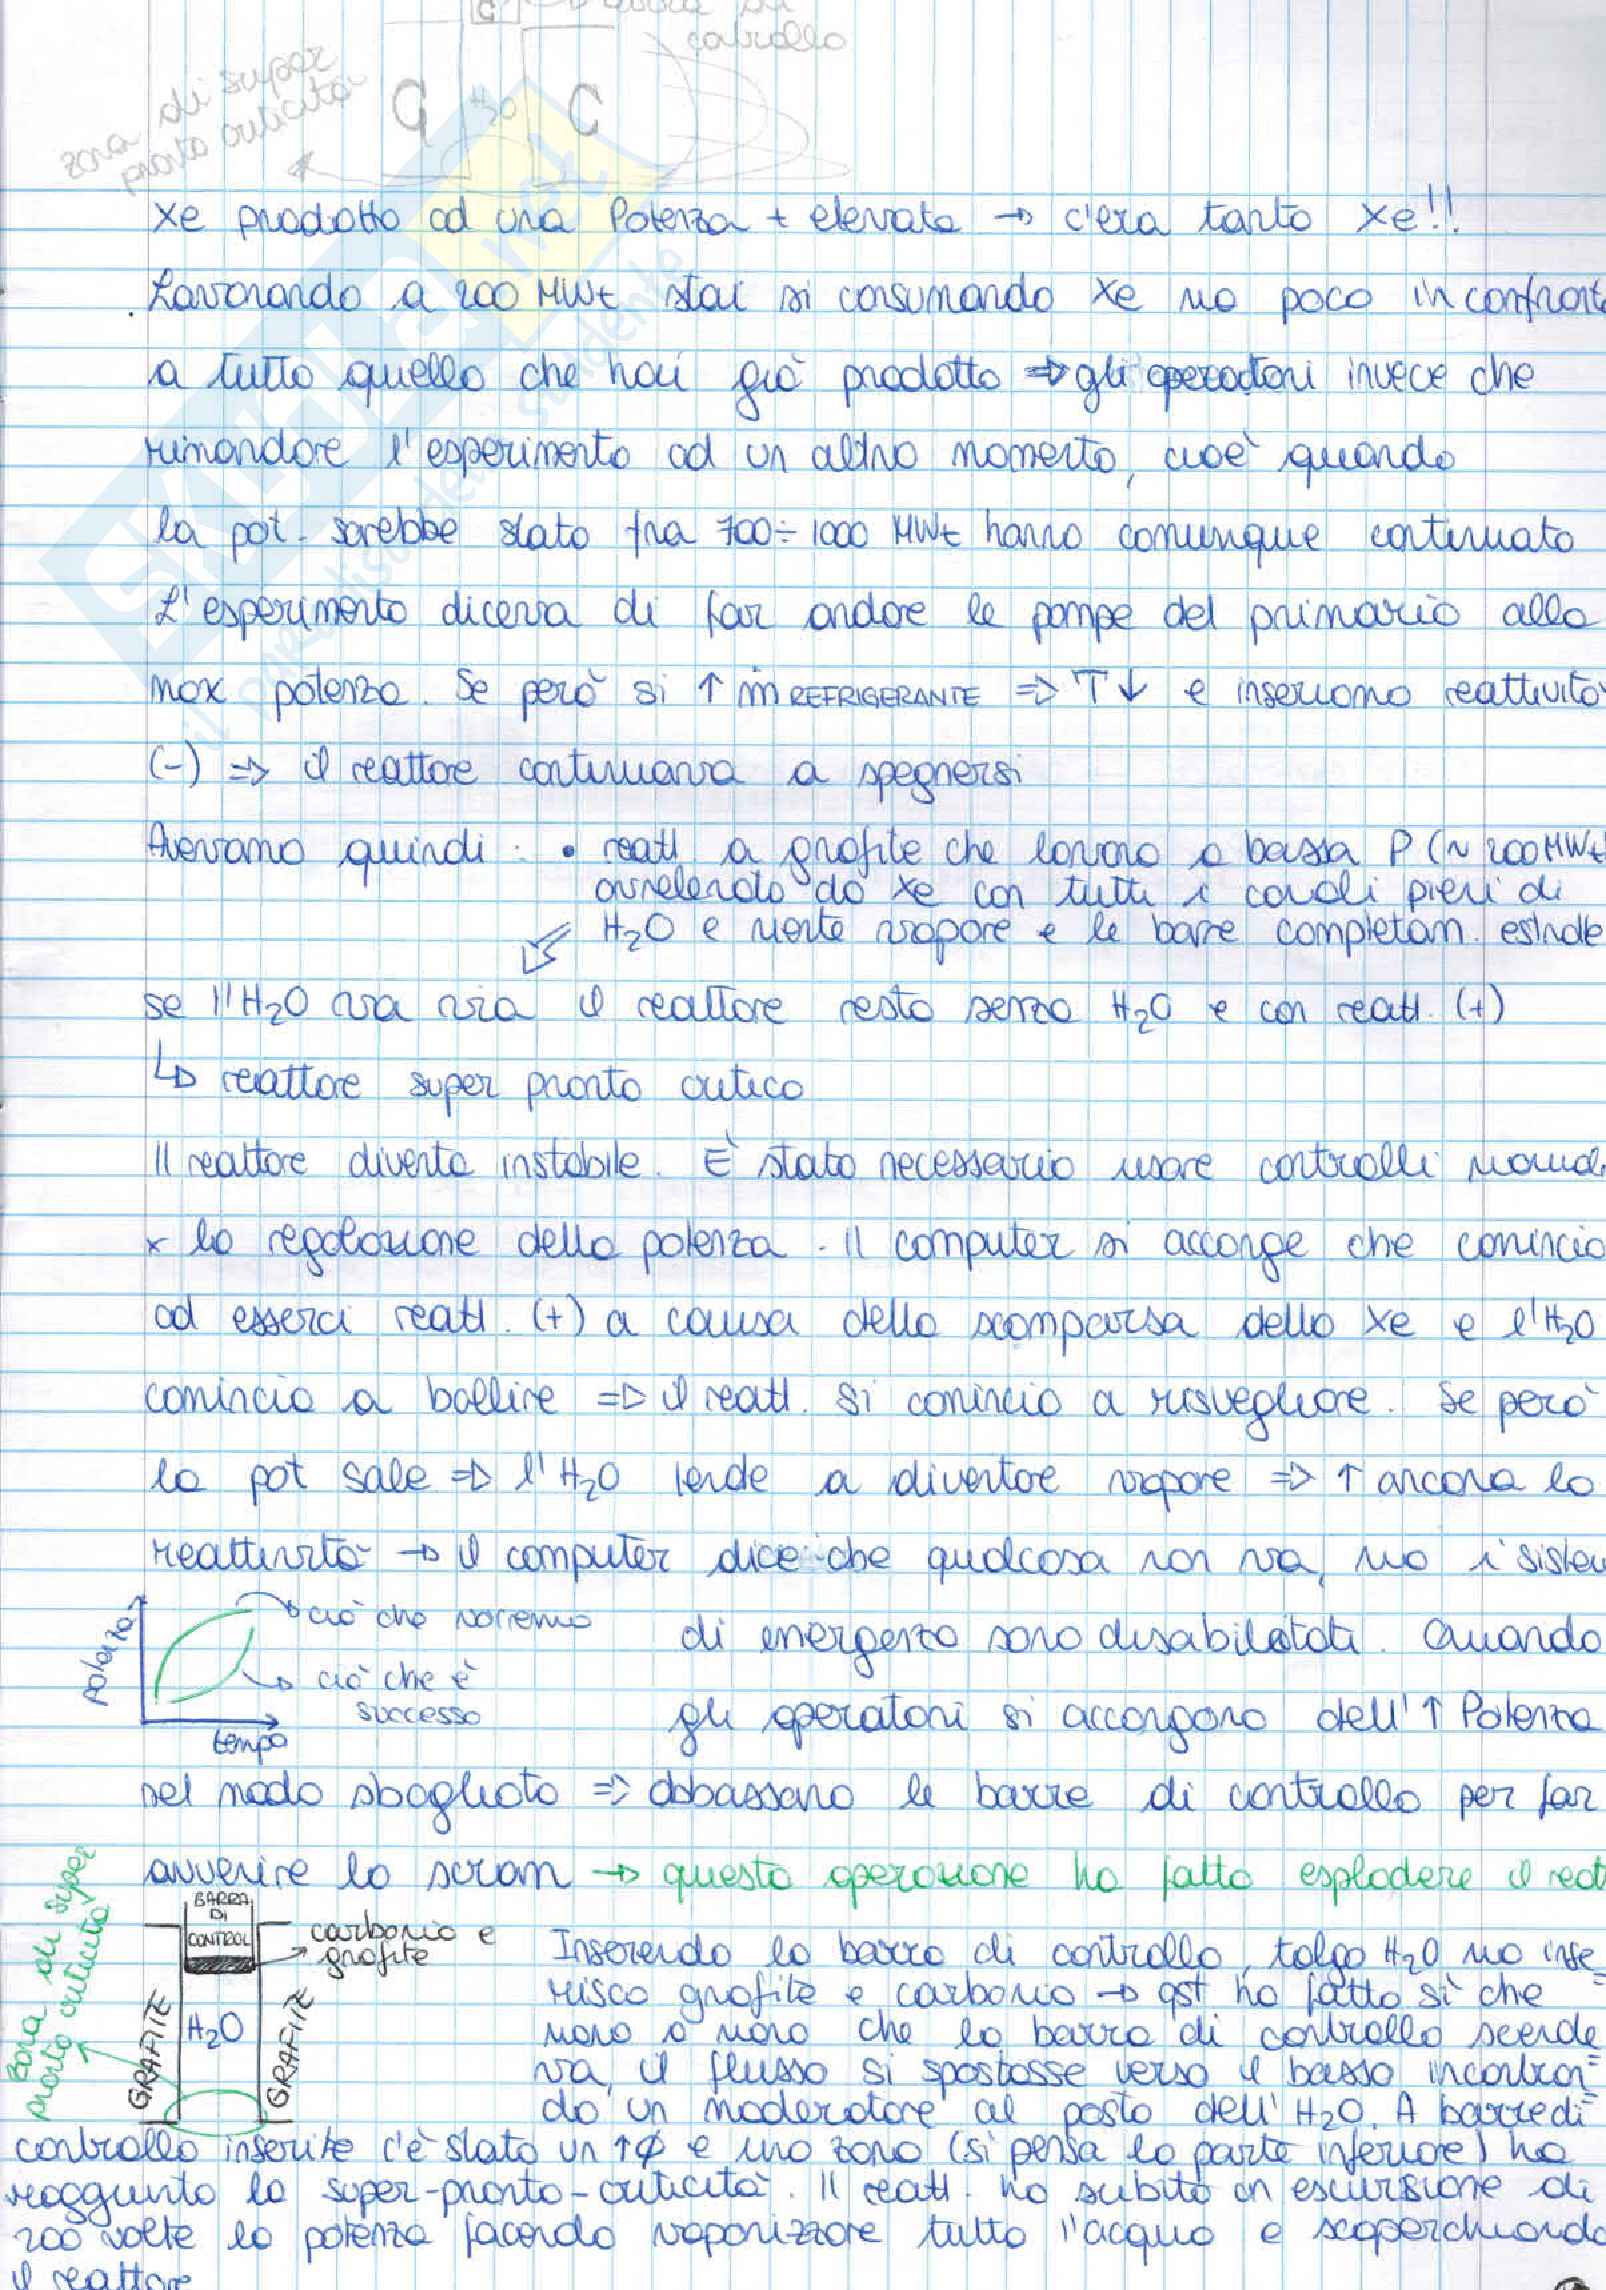 barra di
controllo
zona di super
pronto criticità
G H2O C
Xe prodotto ad una Potenza + elevata → c'era tanto Xe!!
Lavorando a 200 MWt stai si consumando Xe ma poco in confronto
a tutto quello che hai già prodotto ⇒ gli operatori invece che
rimandare l'esperimento ad un altro momento, cioè quando
la pot. sarebbe stata fra 700÷1000 MWt hanno comunque continuato
L'esperimento diceva di far andare le pompe del primario alla
max potenza. Se però si ↑ ṁ REFRIGERANTE ⇒ T↓ e inseriamo reattività
(-) ⇒ il reattore continuava a spegnersi
Avevamo quindi: • reatt a grafite che lavora a bassa P (~ 200 MWt)
avvelenato da Xe con tutti i canali pieni di
H2O e niente vapore e le barre completam. estratte
se l'H2O va via il reattore resta senza H2O e con reatt. (+)
↳ reattore super pronto critico
Il reattore diventa instabile. È stato necessario usare controlli manuali
x la regolazione della potenza. Il computer si accorge che comincia
ad esserci reatt. (+) a causa della scomparsa dello Xe e l'H2O
comincia a bollire ⇒ il reatt. si comincia a risvegliare. Se però
la pot sale ⇒ l'H2O tende a diventare vapore ⇒ ↑ ancora la
reattività → il computer dice che qualcosa non va, ma i sistemi
potenza
tempo
ciò che vorremo
ciò che è
successo
di emergenza sono disabilitati. Quando
gli operatori si accorgono dell'↑ Potenza
nel modo sbagliato ⇒ abbassano le barre di controllo per far
avvenire lo scram → questa operazione ha fatto esplodere il reatt
BARRA
DI
CONTROL
carbonio e
grafite
GRAFITE
H2O
GRAFITE
zona di super
pronto criticità
Inserendo la barra di controllo, tolgo H2O ma inse-
risco grafite e carbonio → qst ha fatto sì che
mano a mano che la barra di controllo scende
va, il flusso si spostasse verso il basso incontran-
do un moderatore al posto dell'H2O. A barre di
controllo inserite c'è stato un ↑ϕ e una zona (si pensa la parte inferiore) ha
raggiunto la super-pronto-criticità. Il reatt. ha subito un escursione di
200 volte la potenza facendo vaporizzare tutta l'acqua e scoperchiando
il reattore